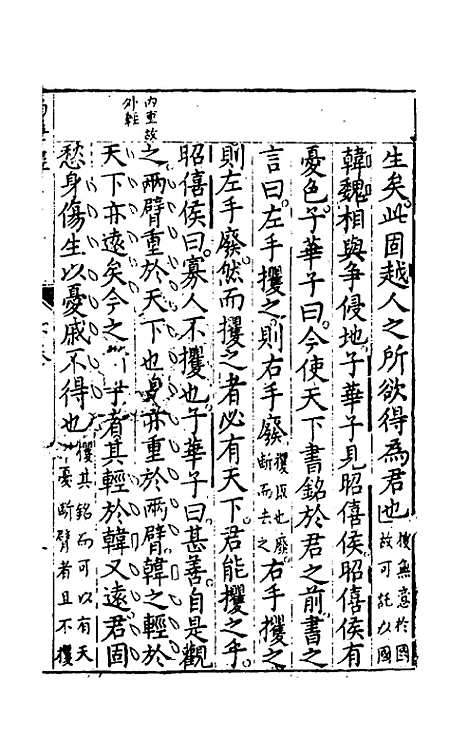 內重故
外輕
生矣此固越人之所欲得為君也搜無意於國故可託以國
韓魏相與爭侵地子華子見昭僖侯昭僖侯有
憂色子華子曰今使天下書銘於君之前書之
言曰左手攫之則右手廢攫取也廢斷而去之右手攫之
則左手廢然而攫之者必有天下君能攫之乎
昭僖侯曰寡人不攫也子華子曰甚善自是觀
之兩臂重於天下也身亦重於兩臂韓之輕於
天下亦遠矣今之 爭者其輕於韓又遠君固
愁身傷生以憂戚不得也攫其銘而可以有天憂斷臂者且不攫